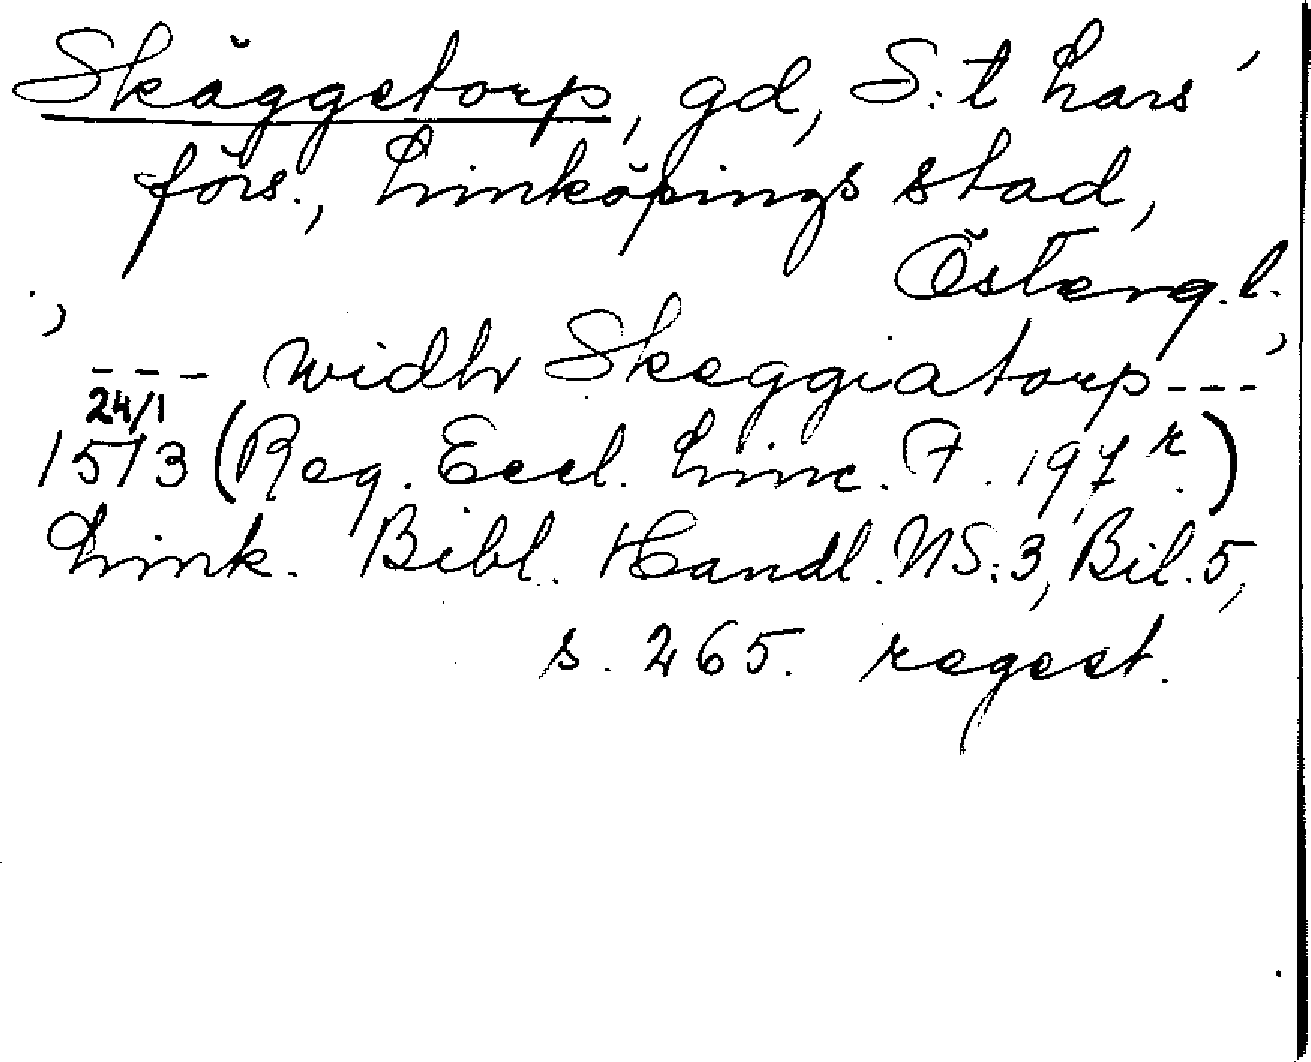 Skäggetorp, gd, S:t Lars'
förs., Linköpings stad,
Österg.l.
--- widh Skeggiatorp---
24/1
1513 (Reg. Eccl. Linc. F. 197 r.)
Link. Bibl. Handl. NS:3, Bil. 5,
s. 265. regest.